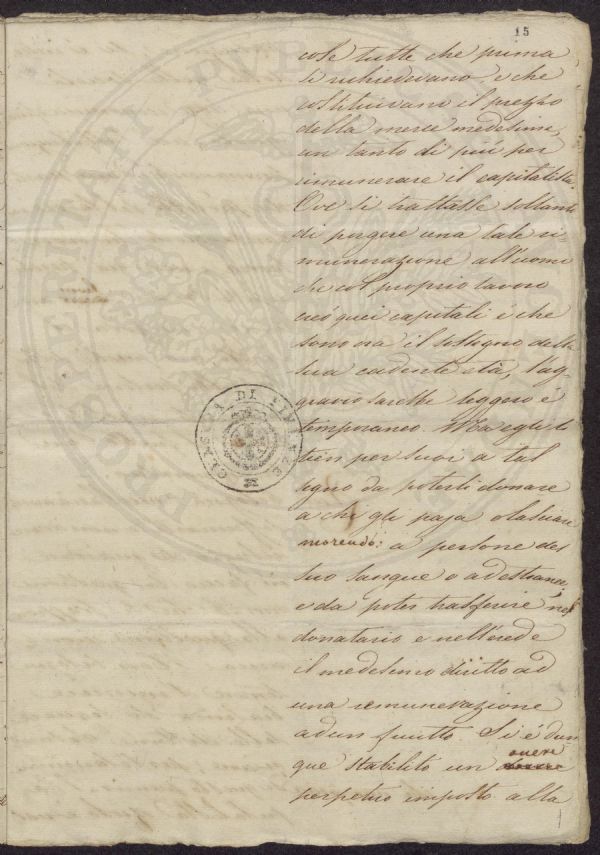 15
cose tutte che prima
si richiedevano, e che
costituivano il prezzo
della merce medesima,
un tanto di più per
rimunerare il capitalista.
Ove si trattasse soltanto
di porgere una tale ri
munerazione all'uomo
che col proprio lavoro
creò quei capitali e che
sono ora il sostegno della
sua cadente età, l'ag
gravio sarebbe leggero e
temporaneo. Ma egli li
tien per suoi a tal
segno da poterli donare
a chi gli paja o lasciare
morendo: a persone del
suo sangue o ad estranei,
e da poter trasferire nel
donatario e nell'erede
il medesimo diritto ad
una remunerazione
ad un frutto. Si è dun
que stabilito un onere
perpetuo imposto alla
PROSPERITATI PVBLICAE
CIVICA DI FIRENZE